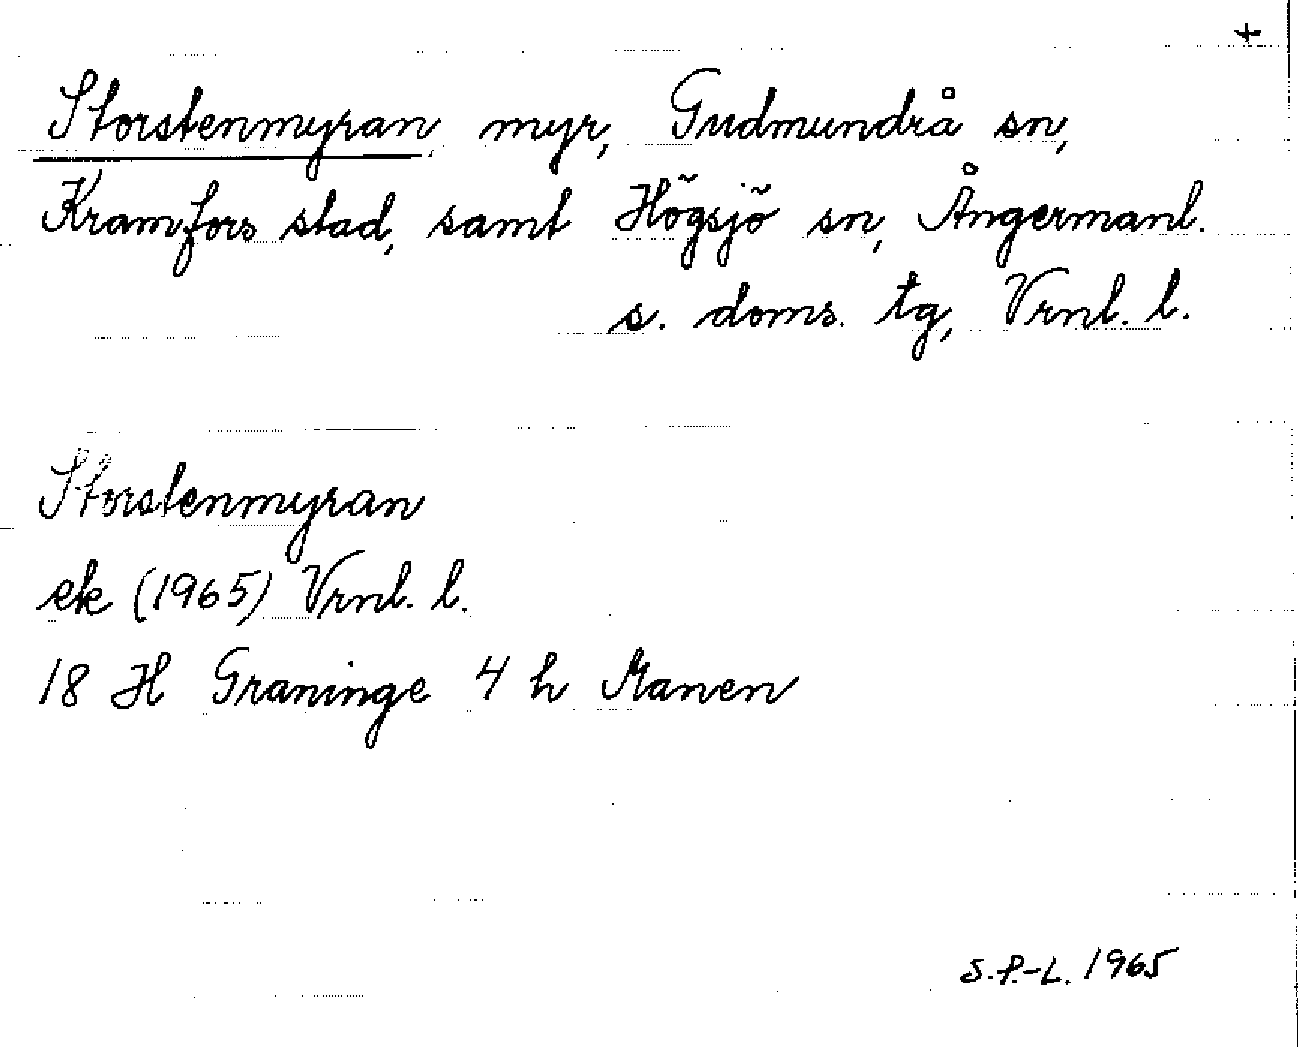 +
Storstenmyran, myr, Gudmundrå sn,
Kramfors stad, samt Högsjö sn, Ångermanl.
s. doms. tg, Vrnl. l.
Storstenmyran
ek (1965) Vrnl. l.
18 H Graninge 4 h Manen
S.P.-L. 1965